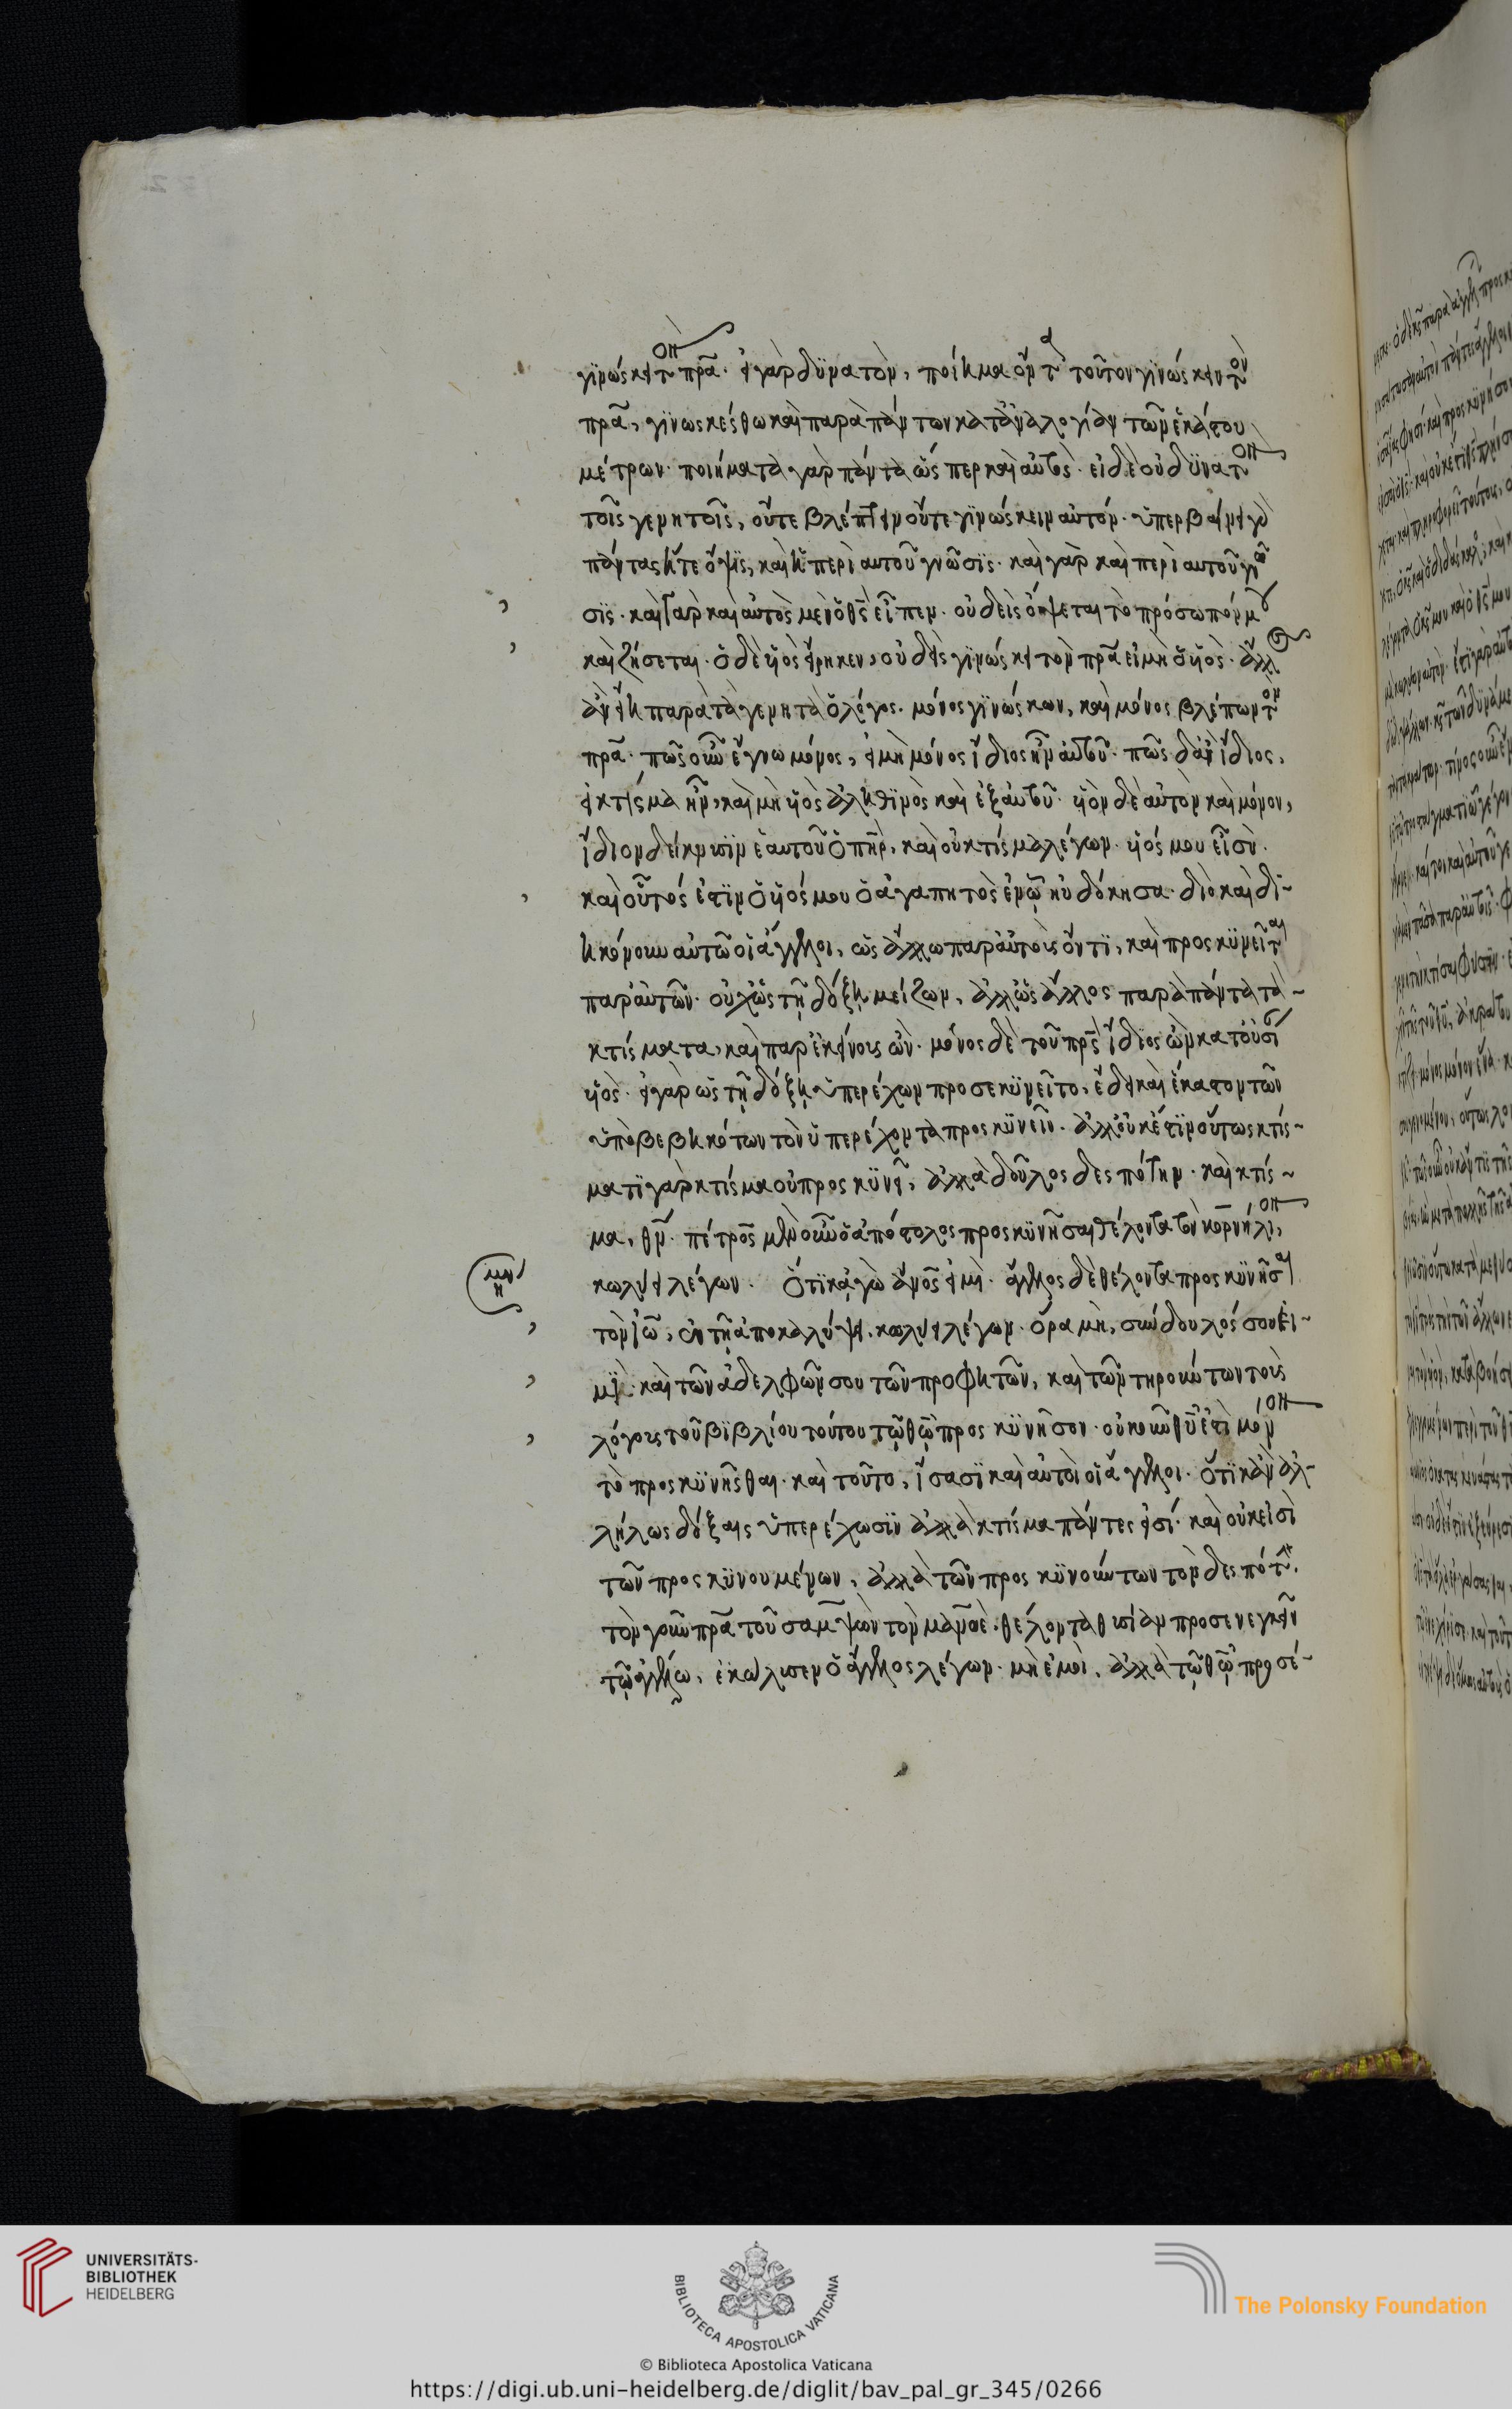 γϊνώσκει τὸν πρ̅α. εἰ γὰρ δϋνατὸν, ποίημα ὄντα τοῦτον γϊνώσκειν τὸν
πρ̅α, γϊνωσκέσθω καὶ παρὰ πάντων κατὰ ἀναλογίαν τῶν ἑκάστου
μέτρων. ποιήματα γὰρ πάντα ὥσπερ καὶ αὐτὸς. εἰ δὲ οὐ δϋνατὸν
τοῖς γενητοῖς, οὔτε βλέπειν οὔτε γϊνώσκειν αὐτόν. ὑπερβαίνει γὰρ
πάντας ἥτε ὄψϊς, καὶ ἡ περὶ αυτοῦ γνῶσϊς. καὶ γὰρ καὶ περὶ αυτοῦ γνῶ
σϊς. καὶ γὰρ καὶ αὐτὸς μὲν ὁ θ̅ς εἶπεν. οὐδεὶς ὄψεται τὸ πρόσωπόν μου
καὶ ζήσεται. ὁ δὲ υἱὸς εἴρηκεν, οὐδεὶς γϊνώσκει τὸν πρ̅α εἰ μὴ ὁ υἱὸς. ἄλλος
ἂν εἴη παρὰ τὰ γενητὰ ὁ λόγος. μόνος γϊνώσκων, καὶ μόνος βλέπων τὸν
πρ̅α. πῶς οὖν ἔγνω μόνος, εἰ μὴ μόνος ἴδιος ἦν αὐτοῦ. πῶς δ' ἂν ἴδιος,
εἰ κτίσμα ἦν, καὶ μὴ υἱὸς ἀληθϊνὸς καὶ ἐξ αὐτοῦ. υἱὸν δὲ αὐτὸν καὶ μόνον,
ἴδιον δείκνυσϊν ἑαυτοῦ ὁ πη̅ρ, καὶ οὐ κτίσμα λέγων. υἱός μου εἶ σὺ.
καὶ οὗτός ἐστϊν ὁ υἱός μου ὁ ἀγαπητὸς ἐν ᾧ ηὐδόκησα. διὸ καὶ δϊ-
ηκόνουν αὐτῶ οἱ ἄγγελοι, ὡς ἄλλω παρ' αὐτοὺς ὄντϊ, καὶ προσκϋνεῖται
παρ' αὐτῶν. οὐχ ὡς τῇ δόξῃ μείζων, ἀλλ' ὡς ἄλλος παρὰ πάντα τὰ
κτίσματα, καὶ παρ' ἐκείνους ὢν. μόνος δὲ τοῦ πρ̅ς ἴδιος ὢν κατ' οὐσίαν
υἱὸς. εἰ γὰρ ὡς τῇ δόξῃ ὑπερέχων προσεκϋνεῖτο, ἔδει καὶ ἕκαστον τῶν
ὑποβεβηκότων τὸν ὑπερέχοντα προσκϋνεῖν. ἀλλ' οὐκ ἔστϊν οὕτως κτίσ-
ματϊ γὰρ κτίσμα οὐ προσκϋνεῖ, ἀλλὰ δοῦλος δεσπότην. καὶ κτίσ-
μα, θν̅. πέτρος μὲν οὖν ὁ ἀπόστολος προσκϋνῆσαι θέλοντα τὸν κορνήλιον,
κωλύει λέγων. ὅτϊ κἀγὼ ἄν̅ος εἰμὶ. ἄγγελος δὲ θέλοντα προσκϋνῆσαι
τὸν ἰω̅, ἐν τῇ ἀποκαλύψει. κωλύει λέγων. ὅρα μὴ, σύνδουλός σου εἰ-
μϊ. καὶ τῶν ἀδελφῶν σου τῶν προφητῶν, καὶ τῶν τηρούντων τοὺς
λόγους τοῦ βϊβλίου τούτου τῷ θῷ προσκϋνησον. οὐκοῦν θυ̅ ἐστὶ μόνον
τὸ προσκϋνῆσθαι. καὶ τοῦτο, ἴσασϊ καὶ αὐτοὶ οἱ ἄγγελοι. ὅτϊ κἂν ἀλ-
λήλων δόξαις ὑπερέχωσϊν ἀλλὰ κτίσμα πάντες εἰσί. καὶ οὐκ εἰσὶ
τῶν προσκϋνουμένων, ἀλλὰ τῶν προσκϋνούντων τὸν δεσπότην.
τὸν γοῦν πρ̅α τοῦ σαμψὼν τὸν μανωὲ. θέλοντα θυσίαν προσενεγκεῖν
τῷ ἀγγέλω, ἐκώλυσεν ὁ ἄγγελος λέγων. μὴ ἐμοὶ, ἀλλὰ τῷ θῷ προσέ-
UNIVERSITÄTS-
BIBLIOTHEK
HEIDELBERG
BIBLIOTECA APOSTOLICA VATICANA
The Polonsky Foundation
© Biblioteca Apostolica Vaticana
https://digi.ub.uni-heidelberg.de/diglit/bav_pal_gr_345/0266